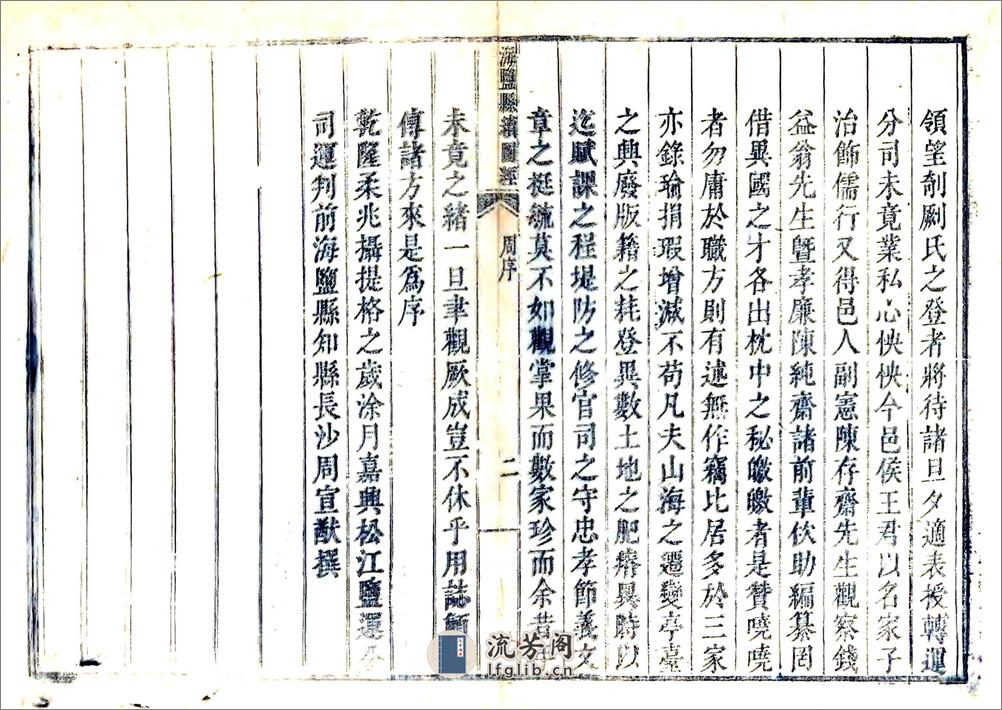 領望剞劂氏之登者將待諸旦夕適表授轉運
分司未竟業私心怏怏今邑侯王君以名家子
治飾儒行又得邑人副憲陳存齋先生觀察錢
益翁先生暨孝廉陳純齋諸前輩佽助編纂罔
借異國之才各出枕中之秘皦皦者是贊嘵嘵
者勿庸於職方則有述無作竊比居多於三家
亦錄瑜捐瑕增減不苟凡夫山海之遷變亭臺
之興廢版籍之耗登異數土地之肥瘠異時以
迄賦課之程堤防之修官司之守忠孝節義文
章之挺毓莫不如觀掌果而數家珍而余昔
海鹽縣續圖經
周序
二
未竟之緒一旦聿觀厥成豈不休乎用誌
傳諸方來是爲序
乾隆柔兆攝提格之歲涂月嘉興松江鹽運分
司運判前海鹽縣知縣長沙周宣猷撰
流芳阁
lfglib.cn